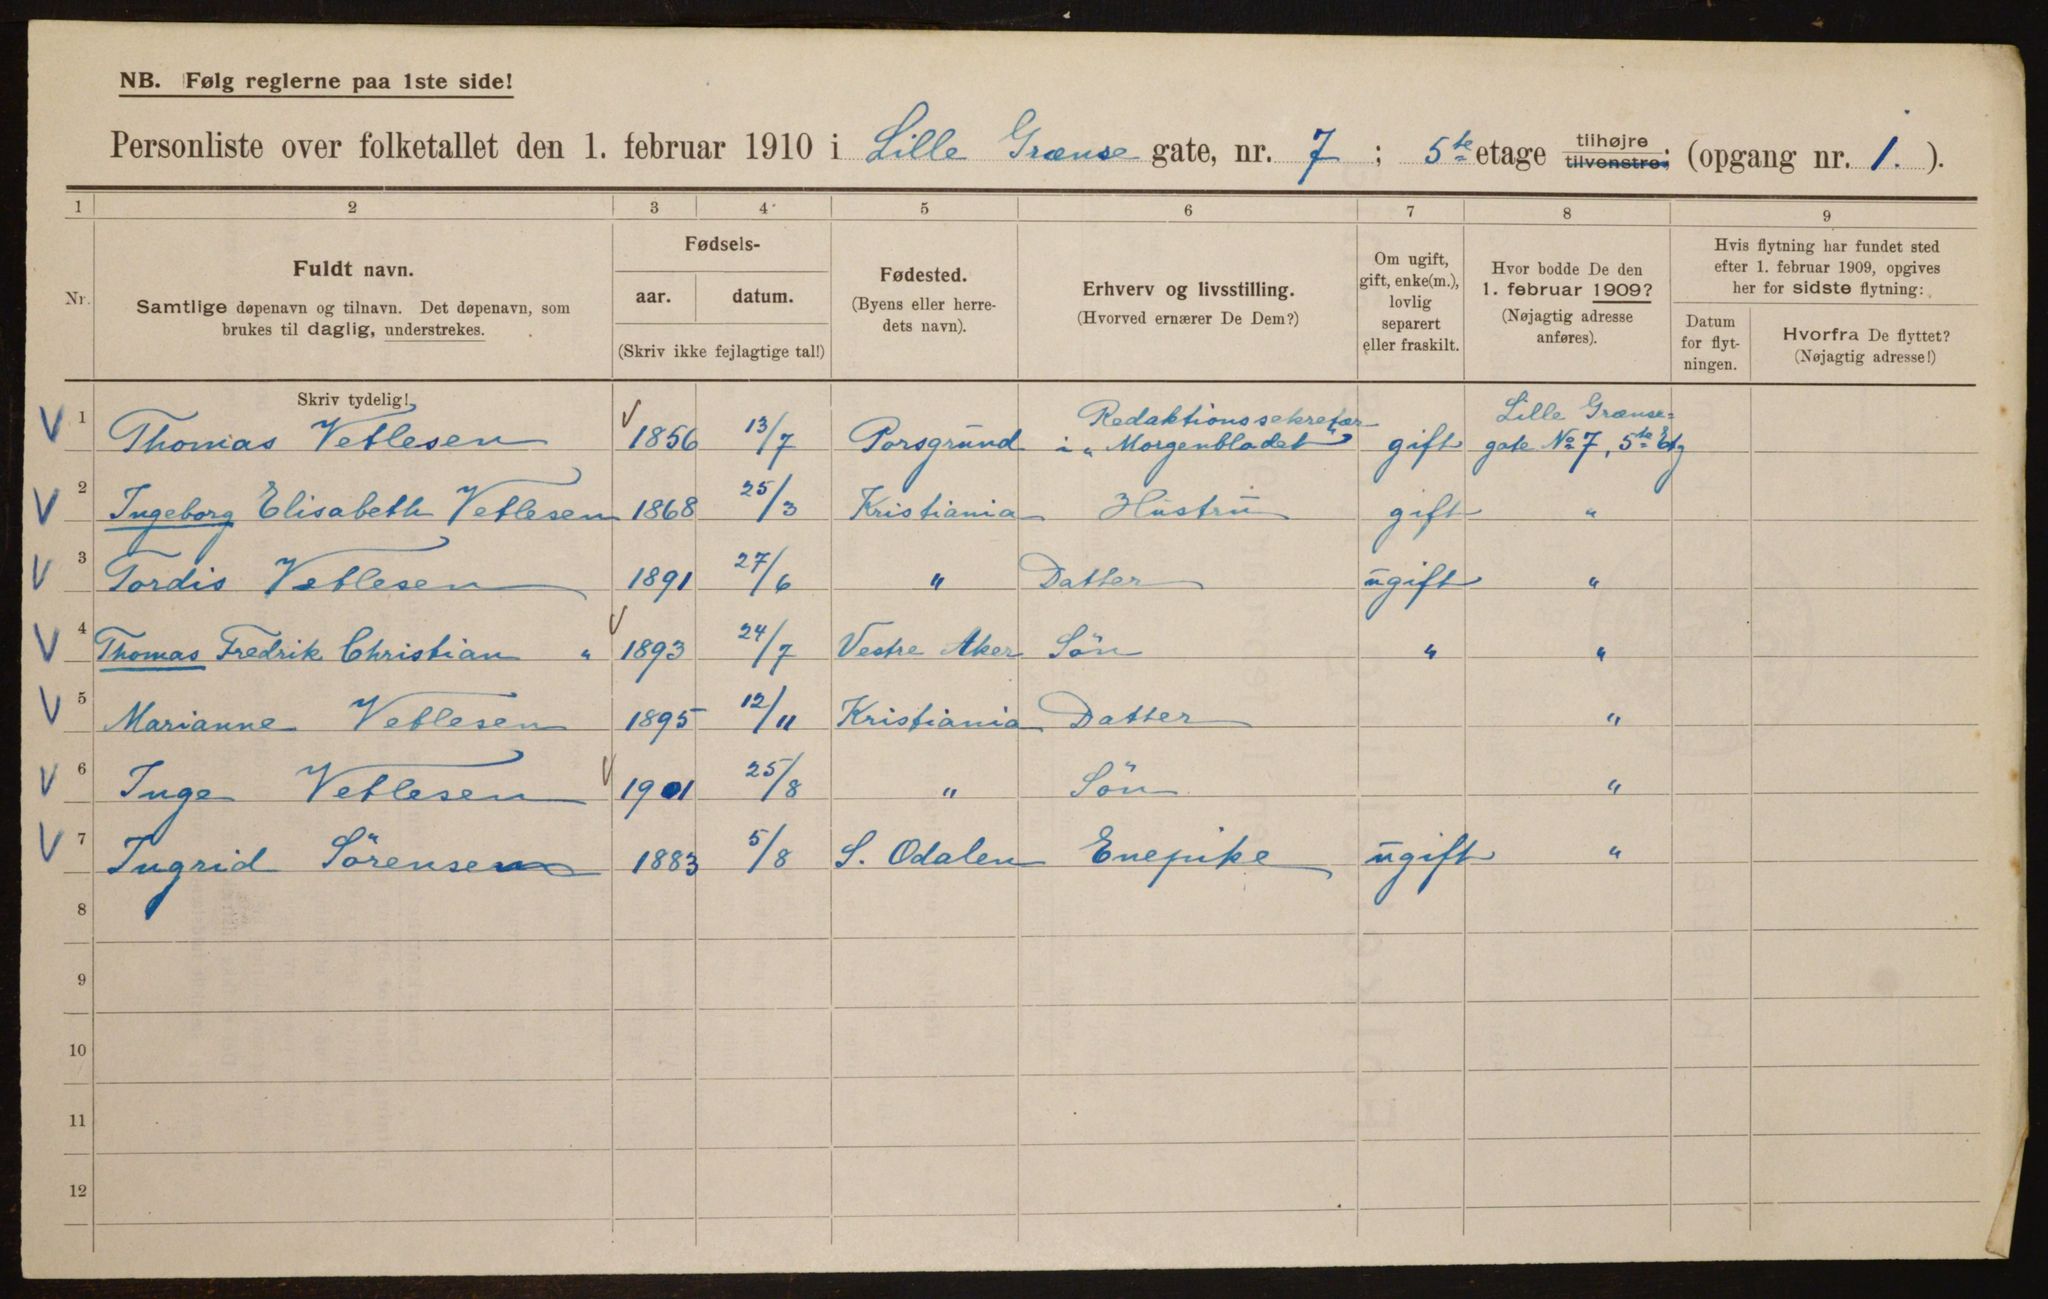 NB. Følg reglerne paa 1ste side!
Personliste over folketallet den 1. februar 1910 i Lille Grænse gate, nr. 7 ; 5te etage tilhøjre tilvenstre; (opgang nr. 1. ).
1 2 3 4 5 6 7 8 9
Nr.
Fuldt navn.
Samtlige døpenavn og tilnavn. Det døpenavn, som
brukes til daglig, understrekes.
Fødsels-
aar. datum.
(Skriv ikke fejlagtige tal!)
Fødested.
(Byens eller herre-
dets navn).
Erhverv og livsstilling.
(Hvorved ernærer De Dem?)
Om ugift,
gift, enke(m.),
lovlig
separert
eller fraskilt.
Hvor bodde De den
1. februar 1909?
(Nøjagtig adresse
anføres).
Hvis flytning har fundet sted
efter 1. februar 1909, opgives
her for sidste flytning:
Datum
for flyt-
ningen.
Hvorfra De flyttet?
(Nøjagtig adresse!)
Skriv tydelig!
V 1 Thomas Vetlesen 1856 13/7 Porsgrund Redaktionssekretær i „Morgenbladet" gift Lille Grænse= gate No 7, 5te Etg
V 2 Ingeborg Elisabeth Vetlesen 1868 25/3 Kristiania Hustru gift "
V 3 Tordis Vetlesen 1891 27/6 " Datter ugift "
V 4 Thomas Fredrik Christian " 1893 24/7 Vestre Aker Sön " "
V 5 Marianne Vetlesen 1895 12/11 Kristiania Datter "
V 6 Inge Vetlesen 1901 25/8 " Sön "
V 7 Ingrid Sörensen 1883 5/8 S. Odalen Enepike ugift "
8
9
10
11
12